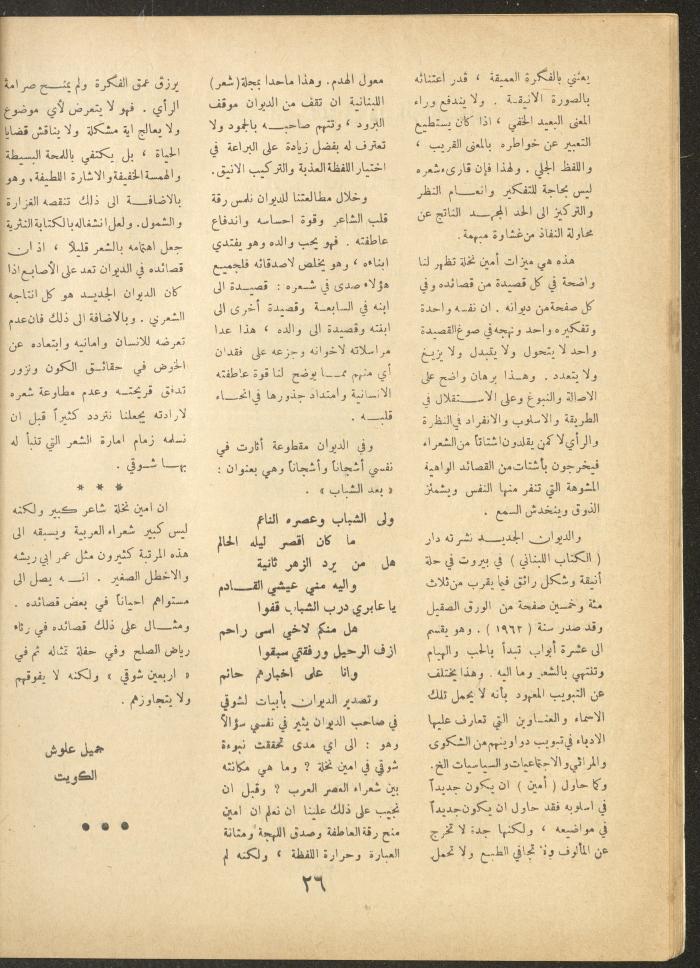 يعتني بالفكرة العميقة ، قدر اعتنائه
بالصورة الانيقة . ولا يندفع وراء
المعنى البعيد الخفي ، اذا كان يستطيع
التعبير عن خواطره بالمعنى القريب ،
واللفظ الجلي . ولهذا فإن قارىء شعره
ليس بحاجة للتفكير وانعام النظر
والتركيز الى الحد المجهد الناتج عن
محاولة النفاذ من غشاوة مبهمة .
هذه هي ميزات أمين نخلة تظهر لنا
واضحة في كل قصيدة من قصائده وفي
كل صفحة من ديوانه . ان نفسه واحدة
وتفكيره واحد ونهجه في صوغ القصيدة
واحد لا يتحول ولا يتبدل ولا يزيغ
ولا يتعدد . وهذا برهان واضح على
الاصالة والنبوغ وعلى الاستقلال في
الطريقة والاسلوب والانفراد في النظرة
والرأي لا كمن يقلدون اشتاتاً من الشعراء
فيخرجون بأشتات من القصائد الواهية
المشوهة التي تنفر منها النفس ويشمئز
الذوق وينخدش السمع .
والديوان الجديد نشرته دار
( الكتاب اللبناني ) في بيروت في حلة
أنيقة وشكل رائق فيما يقرب من ثلاث
مئة وخمسين صفحة من الورق الصقيل
وقد صدر سنة ( ١٩٦٢ ) . وهو يقسم
الى عشرة أبواب تبدأ بالحب والهيام
وتنتهي بالشعر وما اليه . وهذا يختلف
عن التبويب المعهود بأنه لا يحمل تلك
الاسماء والعناوين التي تعارف عليها
الادباء في تبويب دواوينهم من الشكوى
والمراثي والاجتماعيات والسياسيات الخ .
وكما حاول ( أمين ) ان يكون جديداً
في اسلوبه فقد حاول ان يكون جديداً
في مواضيعه ، ولكنها جدة لا تخرج
عن المألوف ولا تجافي الطبع ولا تحمل
معول الهدم . وهذا ما حدا بمجلة (شعر)
اللبنانية ان تقف من الديوان موقف
البرود ، وتتهم صاحبه بالجمود ولا
تعترف له بفضل زيادة على البراعة في
اختيار اللفظة العذبة والتركيب الانيق .
وخلال مطالعتنا للديوان نلمس رقة
قلب الشاعر وقوة احساسه واندفاع
عاطفته . فهو يحب والده وهو يفتدي
ابناءه ، وهو يخلص لاصدقائه فلجميع
هؤلاء صدى في شعره : قصيدة الى
ابنه في السابعة وقصيدة أخرى الى
ابنته وقصيدة الى والده ، هذا عدا
مراسلاته لاخوانه وجزعه على فقدان
أي منهم مما يوضح لنا قوة عاطفته
الانسانية وامتداد جذورها في انحاء
قلبه .
وفي الديوان مقطوعة أثارت في
نفسي أشجاناً وأشجاناً وهي بعنوان :
« بعد الشباب » .
ولى الشباب وعصره الناعم
ما كان أقصر ليله الحالم
هل من يرد الزهر ثانية
واليه مني عيشي القادم
يا عابري درب الشباب قفوا
هل منكم لاخي اسى راحم
ازف الرحيل ورفقتي سبقوا
وانا على اخبارهم حائم
وتصدير الديوان بأبيات لشوقي
في صاحب الديوان يثير في نفسي سؤالاً
وهو : الى اي مدى تحققت نبوءة
شوقي في امين نخلة ؟ وما هي مكانته
بين شعراء العصر العرب ؟ وقبل ان
نجيب على ذلك علينا ان نعلم ان امين
منح رقة العاطفة وصدق اللهجة ومتانة
العبارة وحرارة اللفظة ، ولكنه لم
يرزق عمق الفكرة ولم يمنح صرامة
الرأي . فهو لا يتعرض لأي موضوع
ولا يعالج اية مشكلة ولا يناقش قضايا
الحياة ، بل يكتفي باللمحة البسيطة
والهمسة الخفيفة والاشارة اللطيفة . وهو
بالاضافة الى ذلك تنقصه الغزارة
والشمول . ولعل انشغاله بالكتابة النثرية
جعل اهتمامه بالشعر قليلا ، اذ ان
قصائده في الديوان تعد على الأصابع اذا
كان الديوان الجديد هو كل انتاجه
الشعري . وبالاضافة الى ذلك فان عدم
تعرضه للانسان وامانيه وابتعاده عن
الخوض في حقائق الكون ونزور
تدفق قريحته وعدم مطاوعة شعره
لارادته يجعلنا نتردد كثيراً قبل ان
نسلمه زمام امارة الشعر التي تنبأ له
بها شوقي .
* * *
ان امين نخلة شاعر كبير ولكنه
ليس كبير شعراء العربية ويسبقه الى
هذه المرتبة كثيرون مثل عمر ابي ريشه
والاخطل الصغير . انه يصل الى
مستواهم احياناً في بعض قصائده .
ومثال على ذلك قصائده في رثاء
رياض الصلح وفي حفلة تمثاله ثم في
« اربعين شوقي » ولكنه لا يفوقهم
ولا يتجاوزهم .
جميل علوش
الكويت
٢٦